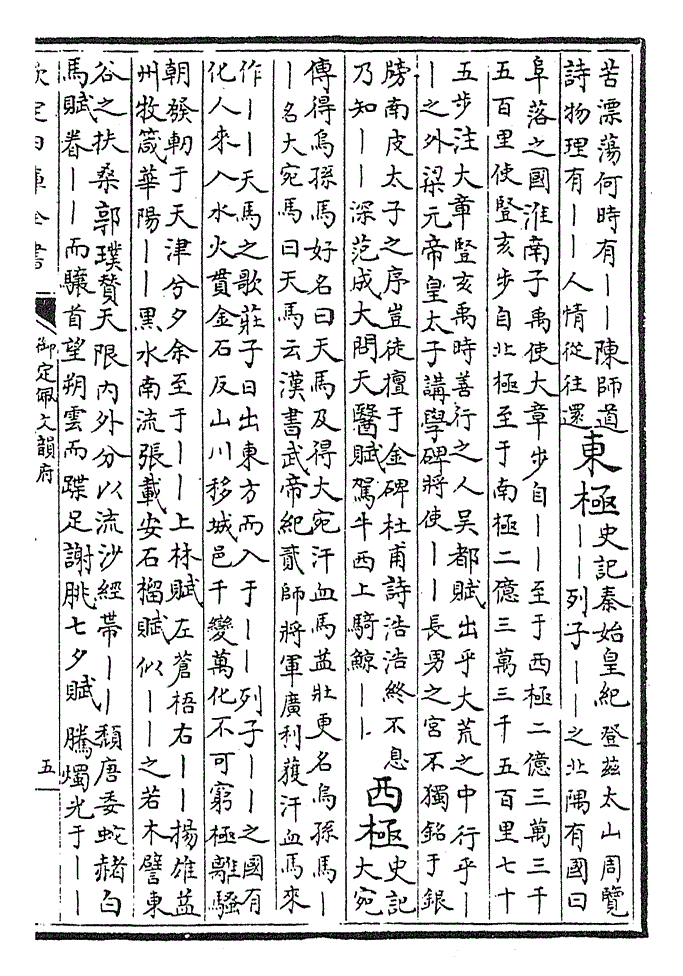 苦漂蕩何時有｜｜陳師道
詩物理有｜｜人情從往還
東極
史記秦始皇紀登茲太山周覽
｜｜列子｜｜之北隅有國曰
阜落之國淮南子禹使大章步自｜｜至于西極二億三萬三千
五百里使豎亥步自北極至于南極二億三萬三千五百里七十
五步注大章豎亥禹時善行之人吳都賦出乎大荒之中行乎｜
｜之外梁元帝皇太子講學碑將使｜｜長男之宮不獨銘于銀
牓南皮太子之序豈徒擅于金碑杜甫詩浩浩終不息
乃知｜｜深范成大問天醫賦駕牛西上騎鯨｜｜
西極
史記
大宛
傳得烏孫馬好名曰天馬及得大宛汗血馬益壯更名烏孫馬｜
｜名大宛馬曰天馬云漢書武帝紀貳師將軍廣利獲汗血馬來
作｜｜天馬之歌莊子日出東方而入于｜｜列子｜｜之國有
化人來入水火貫金石反山川移城邑千變萬化不可窮極離騷
朝發軔于天津兮夕余至于｜｜上林賦左蒼梧右｜｜揚雄益
州牧箴華陽｜｜黑水南流張載安石榴賦似｜｜之若木譬東
谷之扶桑郭璞贊天限內外分以流沙經帶｜｜頹唐委蛇赭白
馬賦眷｜｜而驤首望朔雲而蹀足謝朓七夕賦騰燭光于｜｜
欽定四庫全書
御定佩文韻府
五